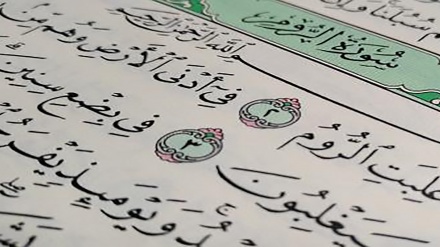 سُورَةُ الرُّومِ
ٱللَّهِ ٱلرَّحْمَٰنِ ٱلرَّحِيمِ
غُلِبَتِ ٱلرُّومُ ٢ فِىٓ أَدْنَى ٱلْأَرْضِ وَهُم مِّنۢ
سَيَغْلِبُونَ ٣ فِى بِضْعِ سِنِينَ
وَيَوْمَئِذٍ يَفْرَحُ